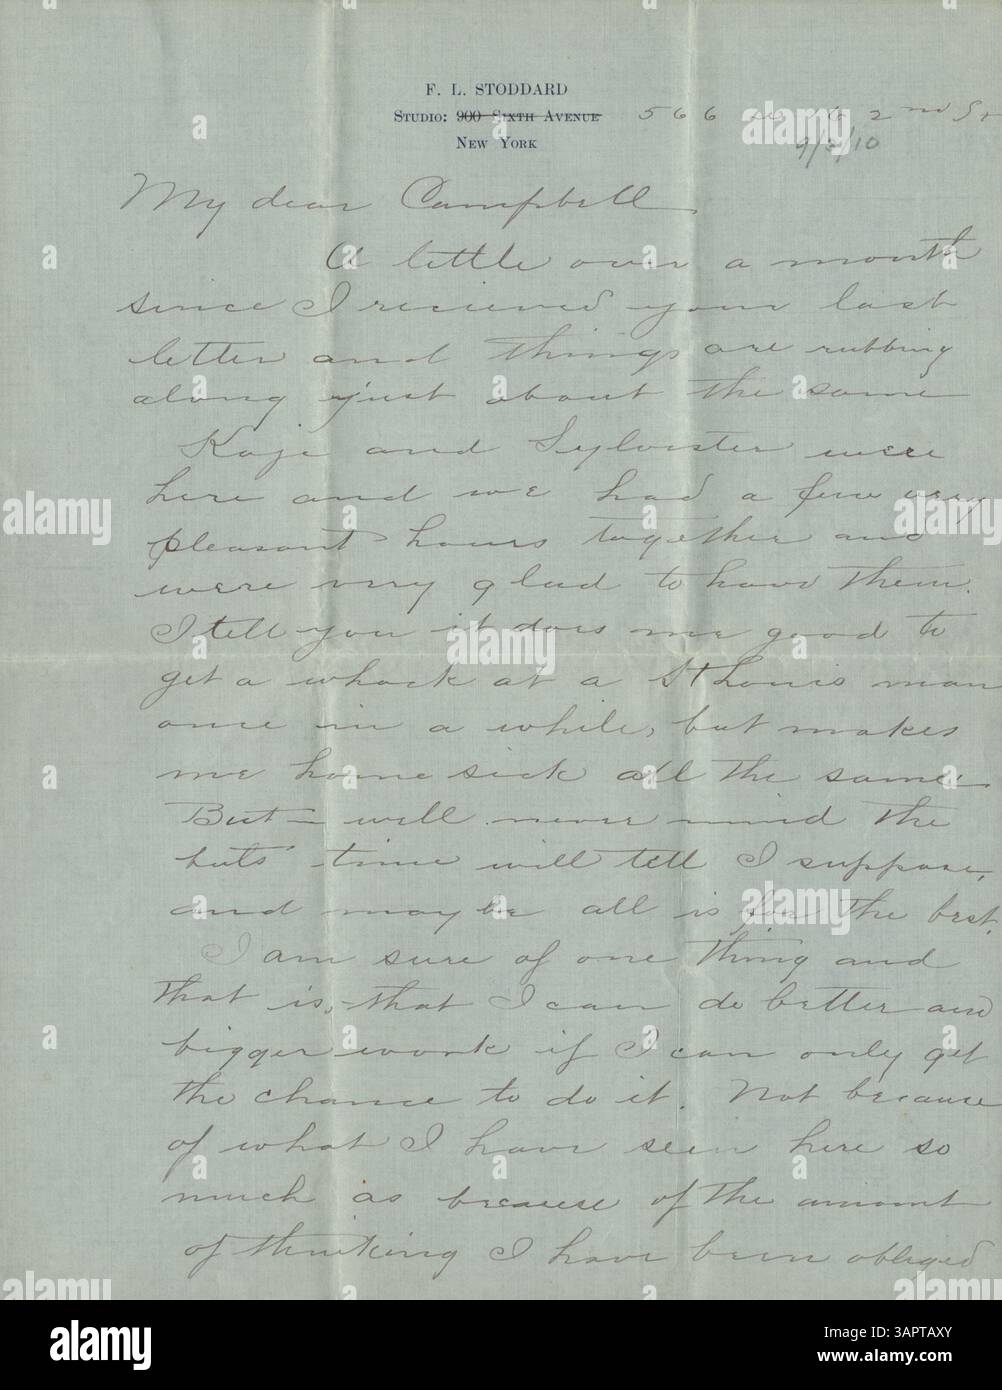 F. L. STODDARD
STUDIO: 900 SIXTH AVENUE 566 W 162nd St
NEW YORK
9/3/10
My dear Campbell
A little over a month
since I recieved your last
letter and things are rubbing
along just about the same
Kaje and Sylvester were
here and we had a few very
pleasant hours together and
were very glad to have them.
I tell you it does me good to
get a whack at a St Louis man
once in a while, but makes
me home sick all the same
But — well never mind the
buts' time will tell I suppose,
and maybe all is for the best.
I am sure of one thing and
that is, that I can do better and
bigger work if I can only get
the chance to do it. Not because
of what I have seen here so
much as because of the amount
of thinking I have been obliged
alamy
Image ID: 3APTAXY
www.alamy.com